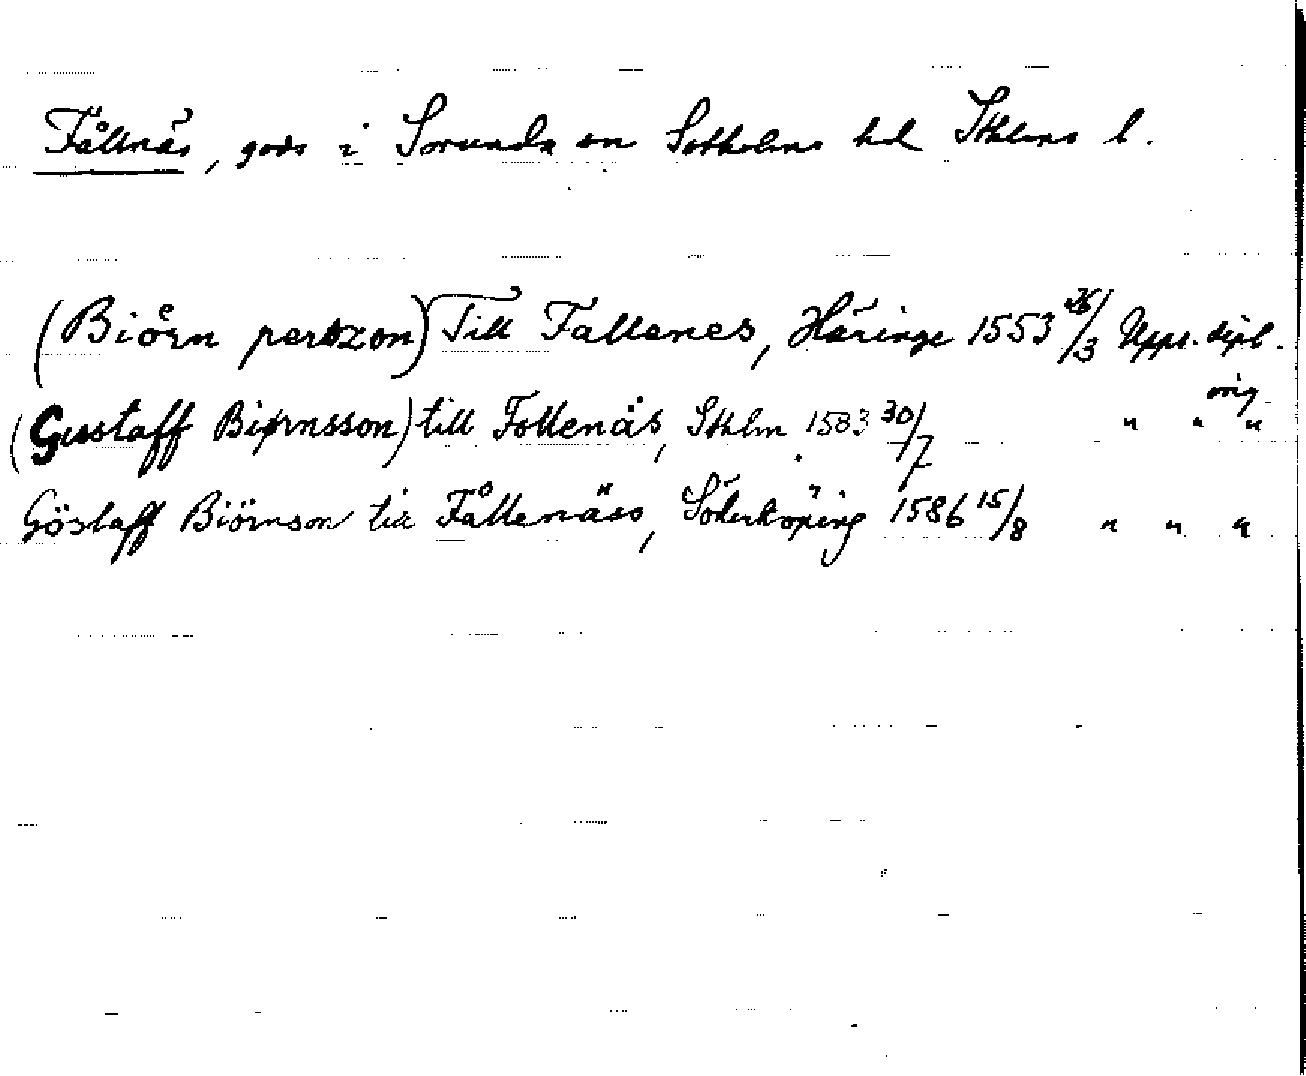 Fållnäs, gods i Sorunda sn Sotholms hd Sthlms l.
(Biörn perszon) Till Fallenes, Häringe 1553 26/3 Upps. dipl.
orig
(Gustaff Biørnsson) till Follenäs, Sthlm 1583 30/7 " " "
Göstaff Biörnson till Fållenäss, Söderköping 1586 15/8 " " "